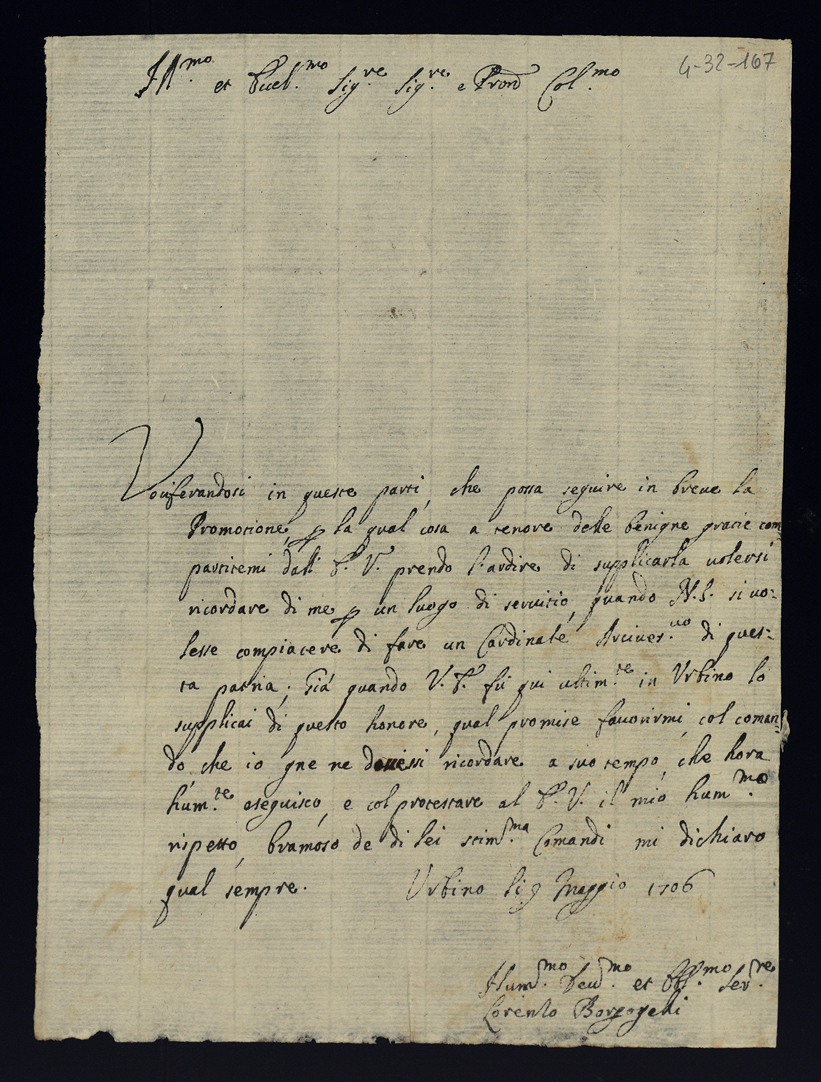 4-32-167
Ill.mo et Ecel.mo Sig.re Sig.re e Pron Col.mo
Vociferandosi in queste parti, che possa seguire in breve la
Promotione, p la qual cosa a tenore delle benigne gracie com
partitemi dall' E. V. prendo l'ardire di supplicarla volersi
ricordare di me p un luogo di servitio, quando N. S. si vo:
lesse compiacere di fare un Cardinale Arcives.vo di ques:
ta patria; Già quando V. E. fù qui ultim.te in Urbino lo
supplicai di questo honore, qual promise favorirmi, col coman
do che io gne ne dovessi ricordare a suo tempo, che hora
hum.te eseguisco, e col protestare al E. V. il mio hum.mo
rispetto, bramoso de di lei stim.ma Comandi mi dichiaro
qual sempre. Urbino li 9 Maggio 1706
Hum.mo Dev.mo et Obl.mo Ser.re
Lorenzo Borgogelli